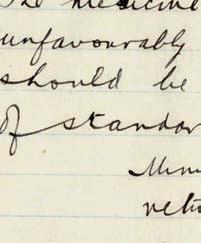 The medicine
unfavourably
should be
of standar
retu